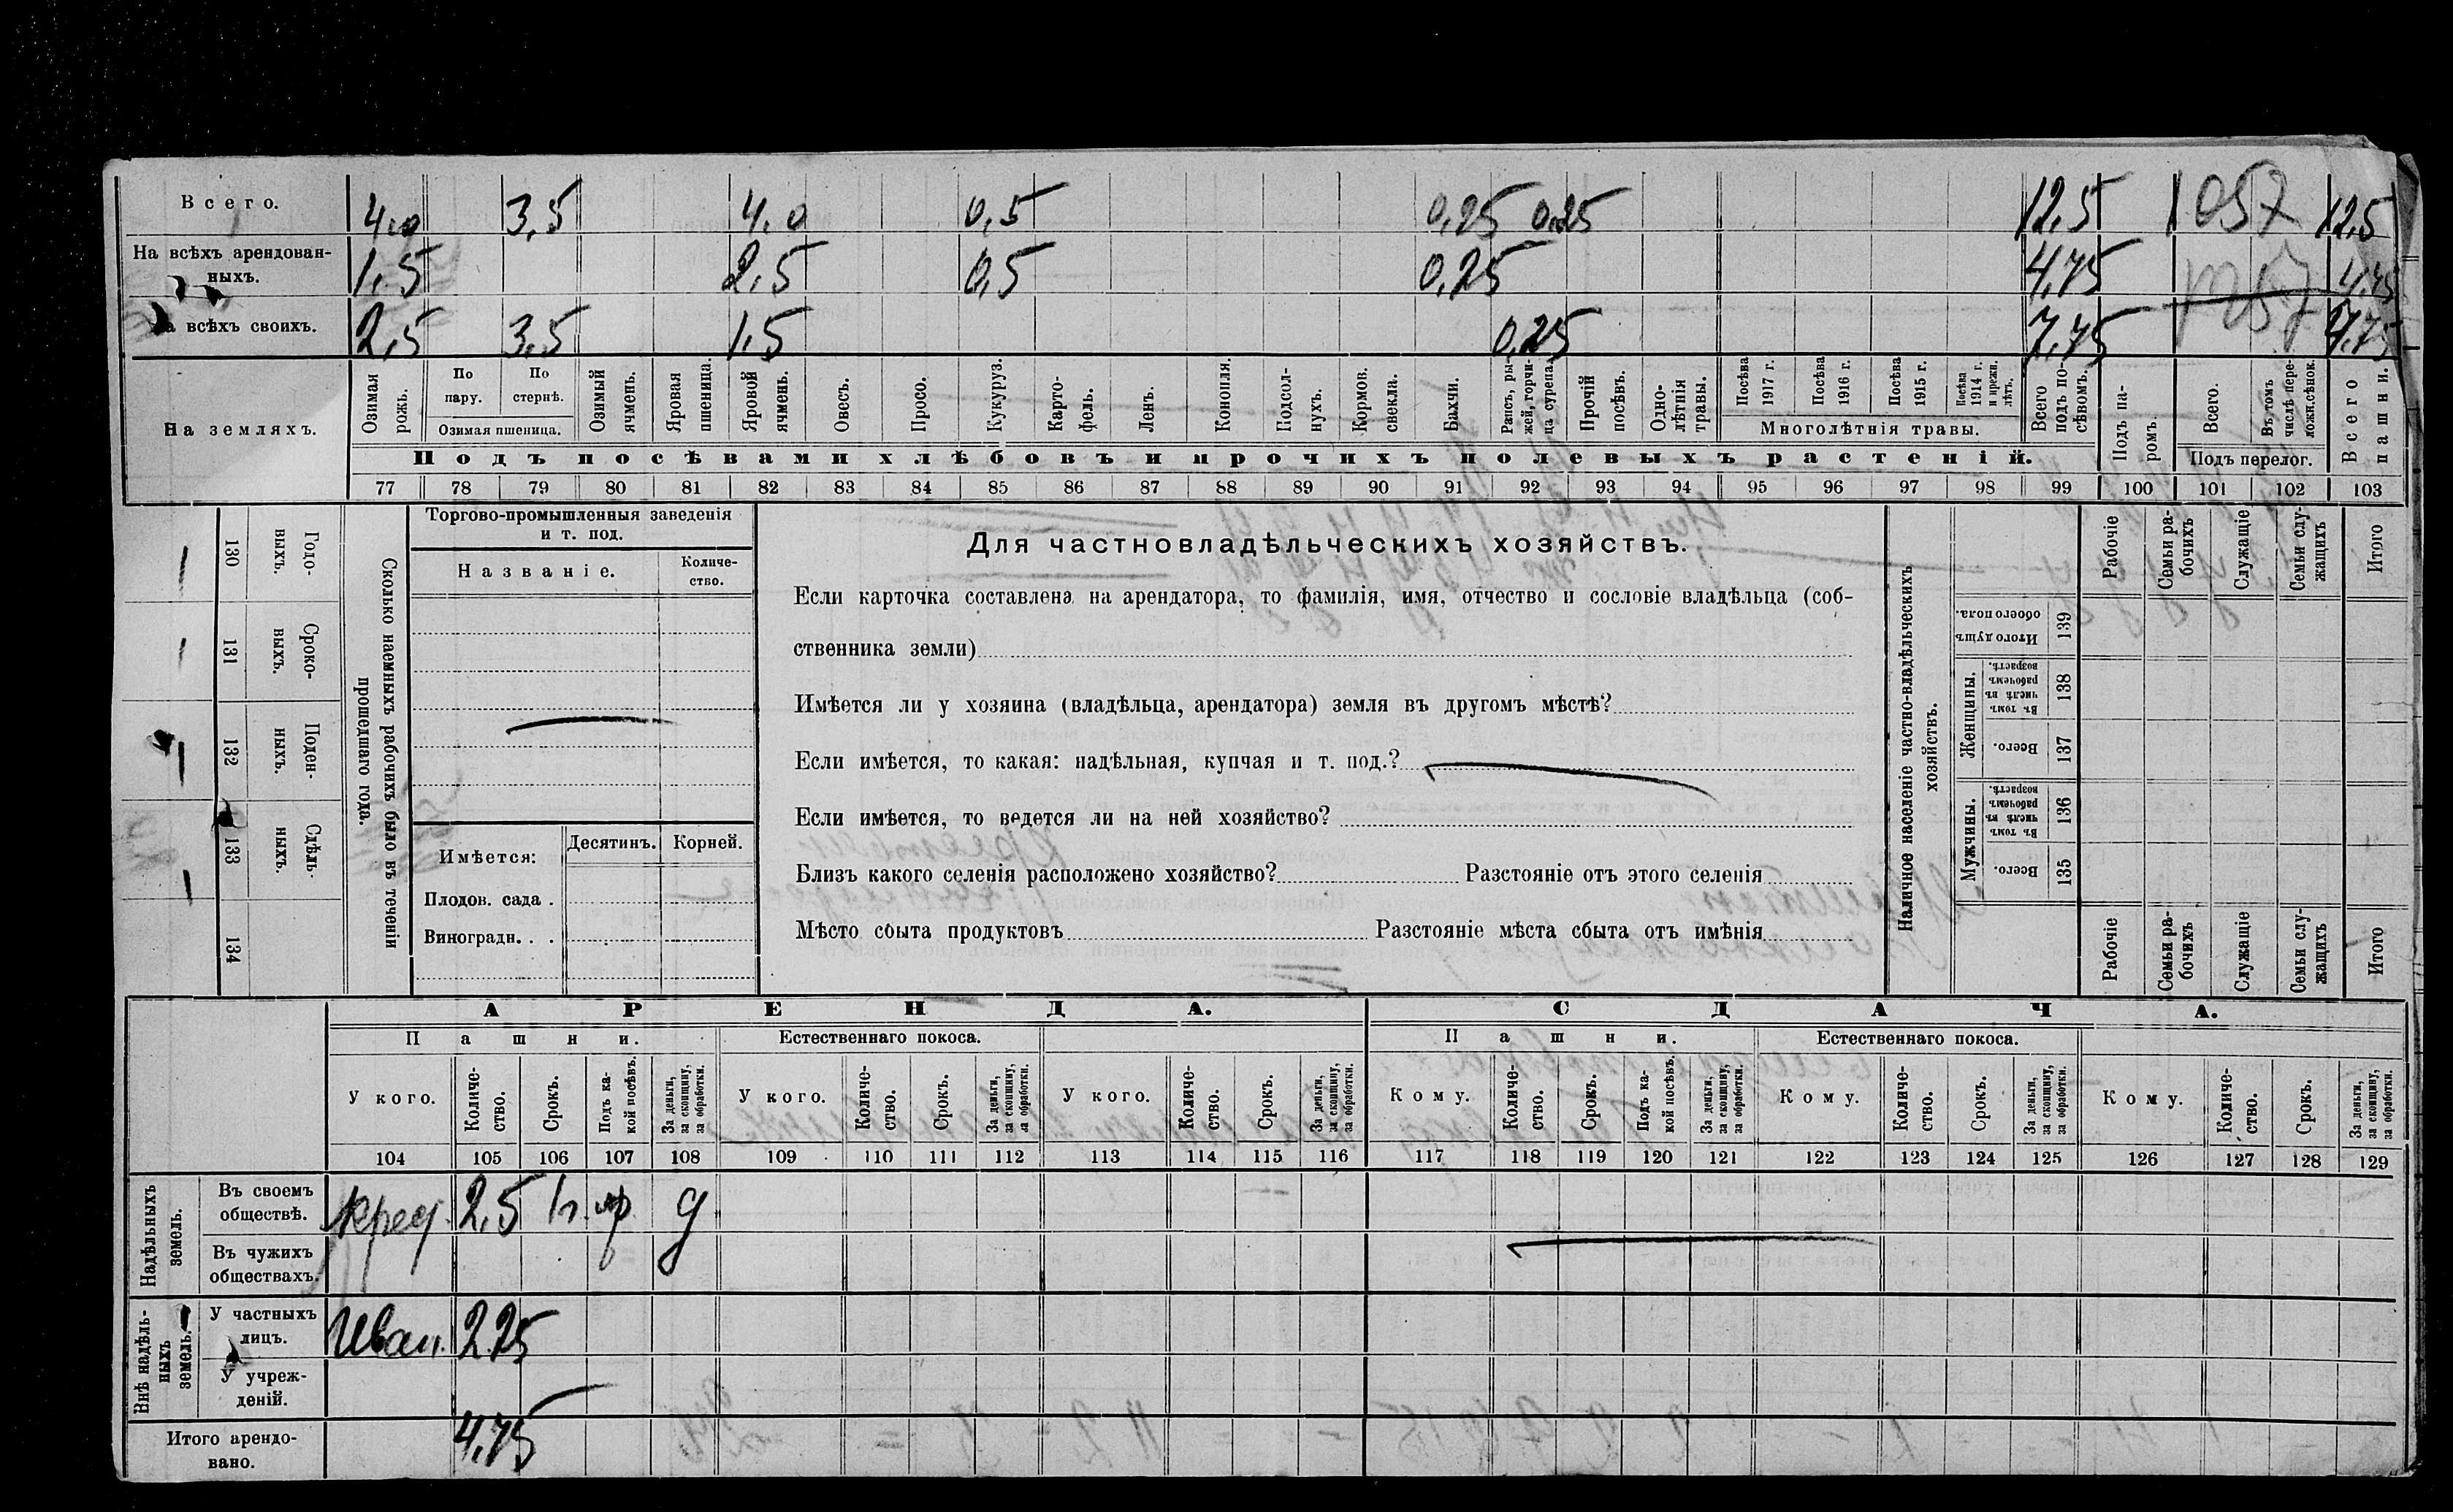 Всего. 4,0 3,5 4,0 0,5 0,25 0,25 12,5 1057 12,5
На всѣхъ арендован-
ныхъ. 1,5 2,5 0,5 0,25 4,75 4,75
всѣхъ своихъ. 2,5 3,5 1,5 0,25 7,75 7,75
На земляхъ.
Озимая рожь.
По пару.
По стернѣ.
Озимая пшеница.
Озимый ячмень.
Яровая пшеница.
Яровой ячмень.
Овесъ.
Просо.
Кукуруз.
Карто-
фель.
Ленъ.
Конопля.
Подсол-
нухъ.
Кормов. свекла.
Бахчи.
Рапсъ, ры-
жей, горчи-
ца сурепа.
Прочій посѣвъ.
Одно-
лѣтнія травы.
Посѣва 1917 г.
Посѣва 1916 г.
Посѣва 1915 г.
Посѣва 1914 г. и прежн. лѣтъ.
Многолѣтнія травы.
Всего подъ по-
сѣвомъ.
Подъ па-
ромъ.
Всего.
Въ томъ числѣ пере-
ложн. сѣнок.
Подъ перелог.
Всего пашни.
Подъ посѣвами хлѣбовъ и прочихъ полевыхъ растеній.
77 78 79 80 81 82 83 84 85 86 87 88 89 90 91 92 93 94 95 96 97 98 99 100 101 102 103
Сколько наемныхъ рабочихъ было въ теченіи
прошедшаго года.
Годо-
выхъ.
130
Сроко-
выхъ.
131
Поден-
ныхъ.
132
Сдѣль-
ныхъ.
133
134
Торгово-промышленныя заведенія
и т. под.
Названіе.
Количе-
ство.
Имѣется:
Десятинъ. Корней.
Плодов. сада .
Виноградн. . .
Для частновладѣльческихъ хозяйствъ.
Если карточка составлена на арендатора, то фамилія, имя, отчество и сословіе владѣльца (соб-
ственника земли)
Имѣется ли у хозяина (владѣльца, арендатора) земля въ другомъ мѣстѣ?
Если имѣется, то какая: надѣльная, купчая и т. под.?
Если имѣется, то ведется ли на ней хозяйство?
Близъ какого селенія расположено хозяйство? Разстояніе отъ этого селенія
Мѣсто сбыта продуктовъ Разстояніе мѣста сбыта отъ имѣнія
Наличное населеніе частно-владѣльческихъ
хозяйствъ.
Рабочіе
Семьи ра-
бочихъ
Служащіе
Семьи слу-
жащихъ
Итого
Итого душъ
обоего пола.
139
Женщины.
Въ томъ числѣ въ рабочемъ возрастѣ.
138
Всего.
137
Мужчины.
Въ томъ числѣ въ рабочемъ возрастѣ.
136
Всего.
135
Рабочіе
Семьи ра-
бочихъ
Служащіе
Семьи слу-
жащихъ
Итого
АРЕНДА. СДАЧА.
Пашни. Естественнаго покоса. Пашни. Естественнаго покоса.
У кого.
Количе-
ство.
Срокъ.
Подъ ка-
кой посѣвъ.
За деньги,
за скопщину,
за обработки.
У кого.
Количе-
ство.
Срокъ.
За деньги,
за скопщину,
за обработки.
У кого.
Количе-
ство.
Срокъ.
За деньги,
за скопщину,
за обработки.
Кому.
Количе-
ство.
Срокъ.
Подъ ка-
кой посѣвъ.
За деньги,
за скопщину,
за обработки.
Кому.
Количе-
ство.
Срокъ.
За деньги,
за скопщину,
за обработки.
Кому.
Количе-
ство.
Срокъ.
За деньги,
за скопщину,
за обработки.
104 105 106 107 108 109 110 111 112 113 114 115 116 117 118 119 120 121 122 123 124 125 126 127 128 129
Надѣльныхъ
земель.
Въ своемъ
обществѣ. 2,5 д
Въ чужихъ
обществахъ.
Внѣ надѣль-
ныхъ
земель.
У частныхъ
лицъ. Иван. 2,25
У учреж-
деній.
Итого арендо-
вано. 4,75